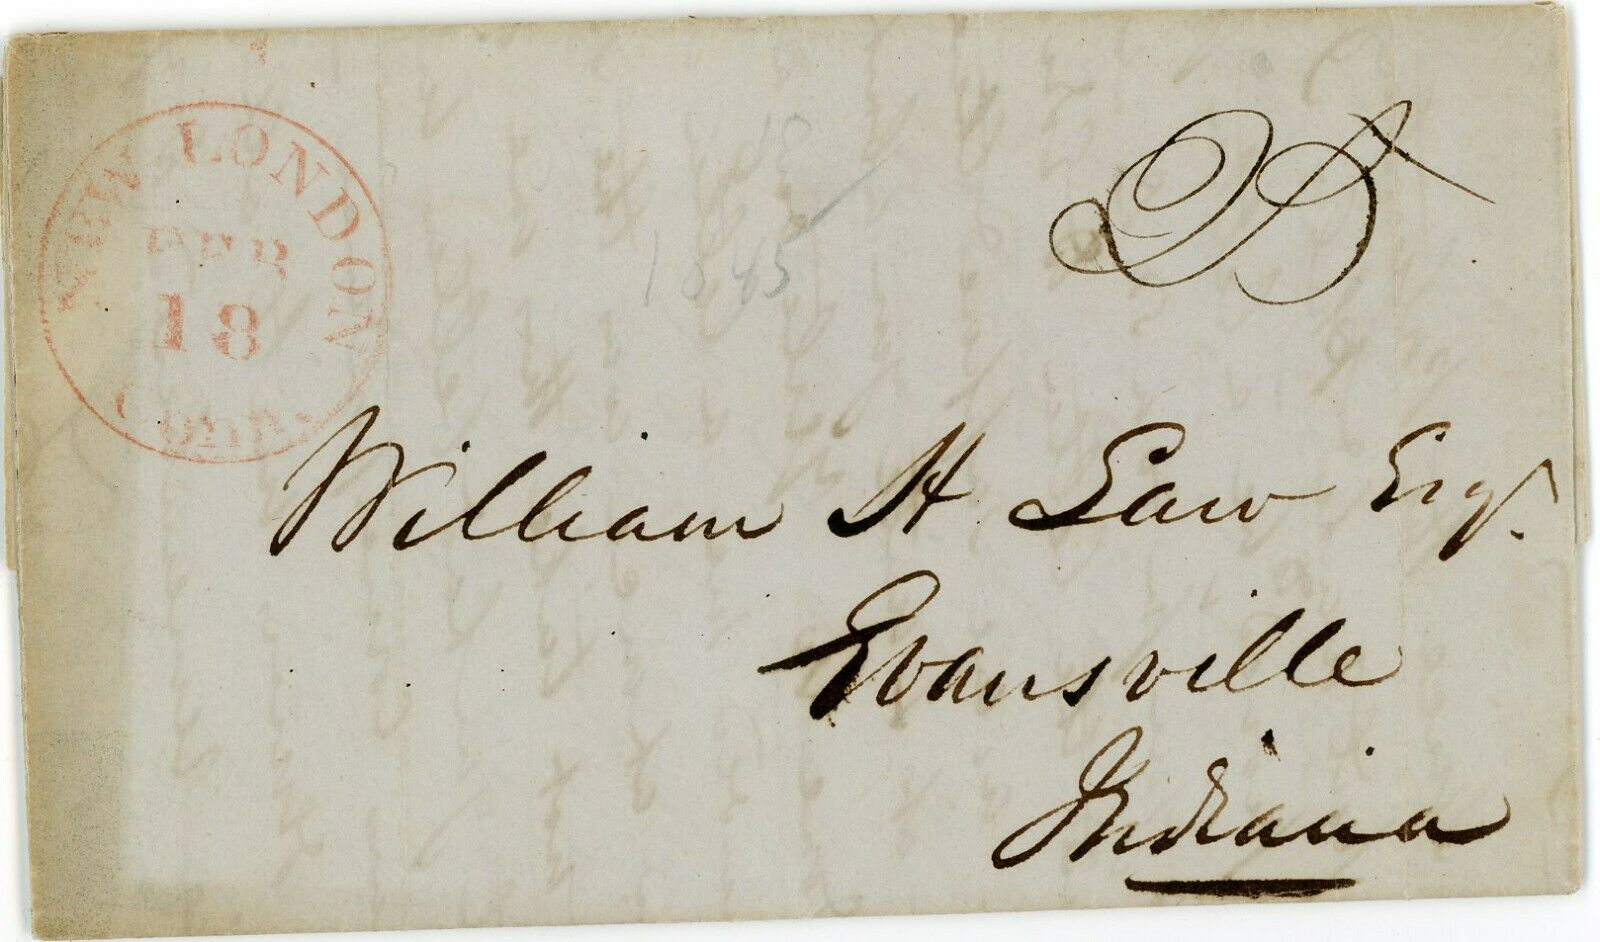 NEW LONDON
FEB
18
Conn.
25
1845
William H Law Esqr.
Evansville
Indiana